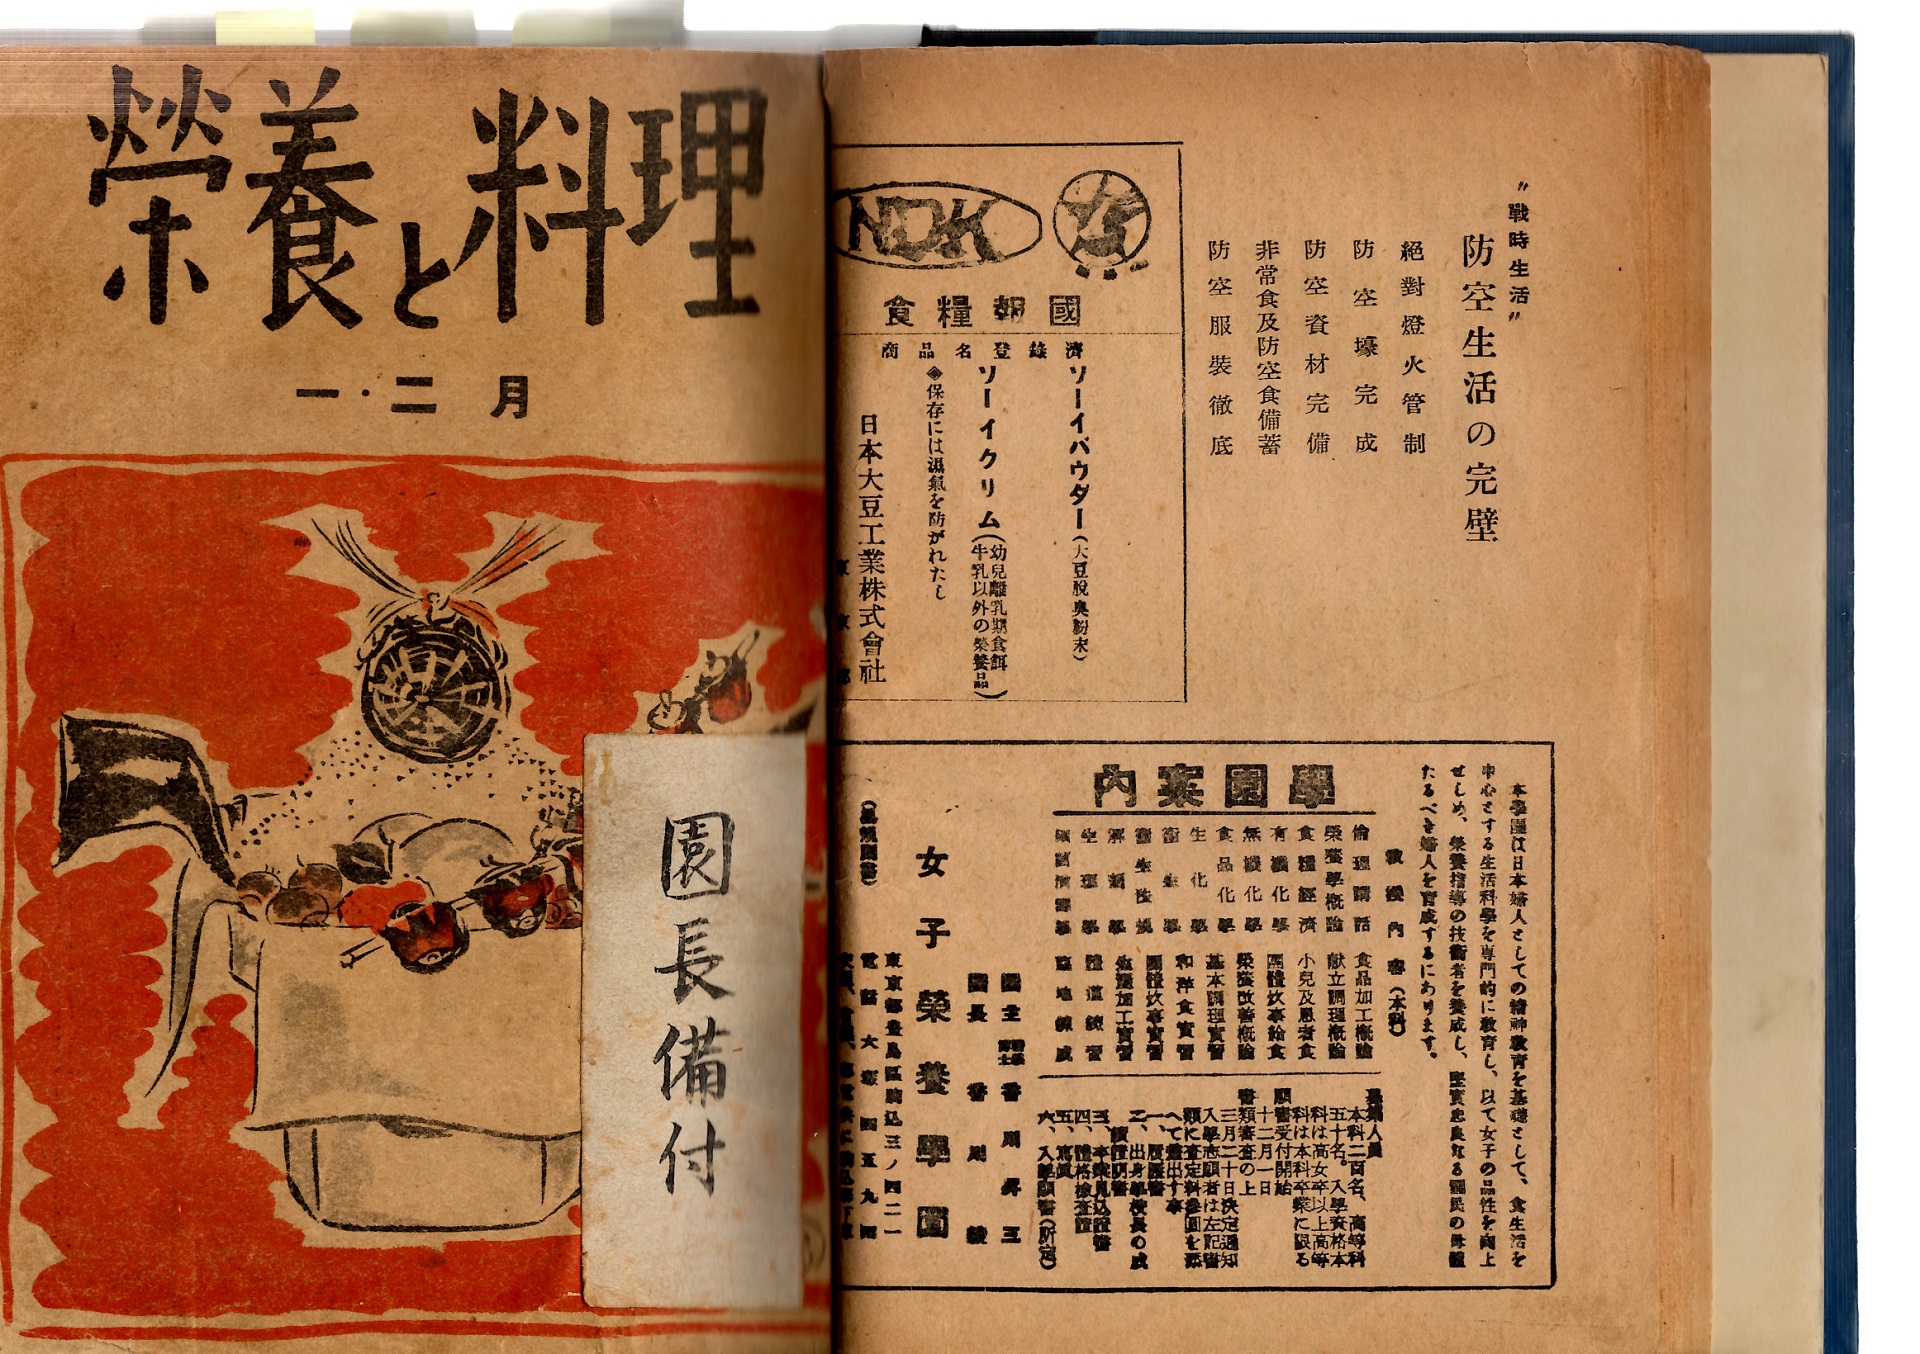 榮養と料理
一・二月
園長備付
〃戰時生活〃
防空生活の完壁
絕對燈火管制
防空壕完成
防空資材完備
非常食及防空食備蓄
防空服裝徹底
NDK
國報糧食
商品名登錄濟
ソーイパウダー(大豆脫臭粉末)
ソーイクリム(幼兒離乳期食餌
牛乳以外の榮養品)
◈保存には濕氣を防がれたし
日本大豆工業株式會社
東京都
本學園は日本婦人としての精神敎育を基礎として、食生活を
中心とする生活科學を専門的に敎育し、以て女子の品性を向上
せしめ、榮養指導の技術者を養成し、堅實忠良なる國民の母體
たるべき婦人を育成するにあります。
學園案內
敎授內容(本科)
倫理講話
榮養學槪論
食糧經濟
有機化學
無機化學
食品化學
生化學
衞生學
衞生法規
解剖學
生理學
食品加工槪論
献立調理槪論
小兒及患者食
團體炊事給食
榮養改善槪論
基本調理實習
和洋食實習
團體炊事實習
食糧加工實習
募集人員
本科二百名、高等科
五十名。入學資格本
科は高女卒以上高等
科は本科卒業に限る
願書受付開始
十二月一日
書類審査の上
三月二十日決定通知
入學志願者は左記書
類に査定料參圓を添
へて差出す事
一、履歷書
二、出身學校長の成
績證明書
三、本業見込證書
四、體格檢査證
五、寫眞
六、入學願書(所定)
園主 醫學博士 香川昇三
園長 香川綾
女子榮養學園
東京都豊島區駒込三ノ四二一
電話大塚四五九四